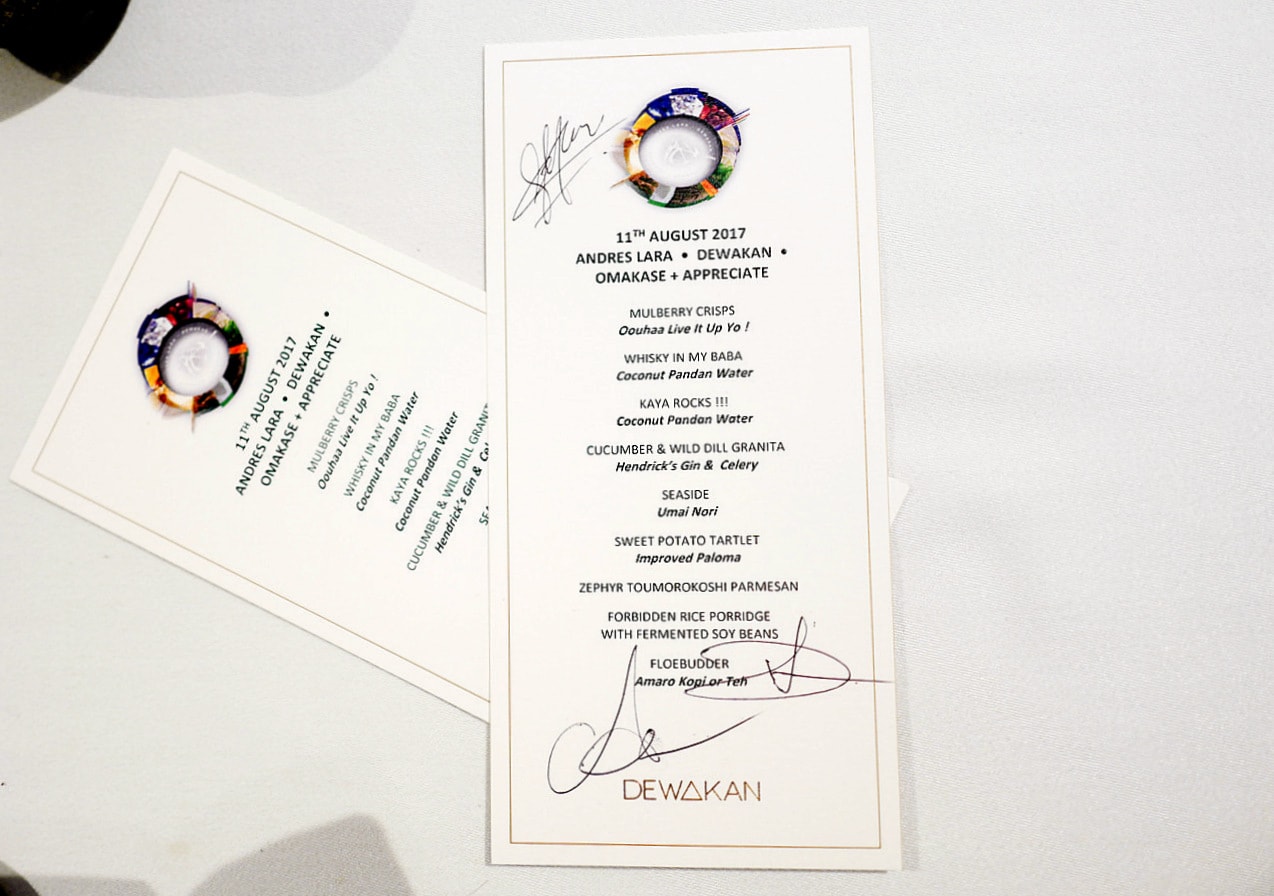 11TH AUGUST 2017
ANDRES LARA • DEWAKAN •
OMAKASE + APPRECIATE
MULBERRY CRISPS
Oouhaa Live It Up Yo !
WHISKY IN MY BABA
Coconut Pandan Water
KAYA ROCKS !!!
Coconut Pandan Water
CUCUMBER & WILD DILL GRANITA
Hendrick's Gin & Celery
SEASIDE
Umai Nori
SWEET POTATO TARTLET
Improved Paloma
ZEPHYR TOUMOROKOSHI PARMESAN
FORBIDDEN RICE PORRIDGE
WITH FERMENTED SOY BEANS
FLOEBUDDER
Amaro Kopi or Teh
DEWAKAN
11TH AUGUST 2017
ANDRES LARA • DEWAKAN •
OMAKASE + APPRECIATE
MULBERRY CRISPS
Oouhaa Live It Up Yo !
WHISKY IN MY BABA
Coconut Pandan Water
KAYA ROCKS !!!
Coconut Pandan Water
CUCUMBER & WILD DILL GRANIT
Hendrick's Gin & Cel